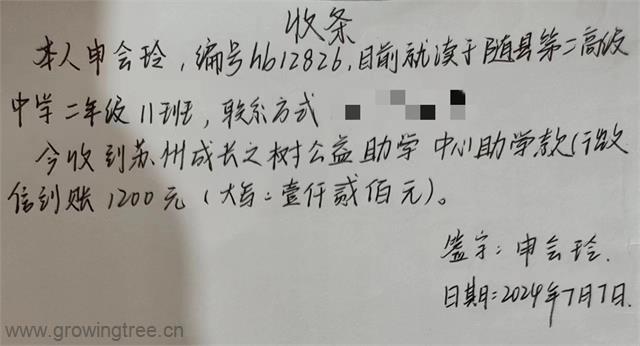 收条
本人申会玲，编号hb12826，目前就读于随县第二高级
中学二年级11班，联系方式
今收到苏州成长之树公益助学中心助学款行政
信到账1200元（大写：壹仟贰佰元）。
签字：申会玲.
日期：2024年7月7日.
www.growingtree.cn